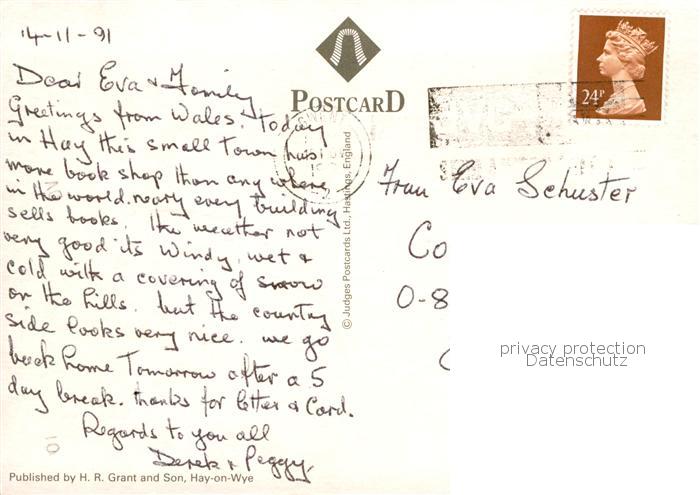 14-11-91
Dear Eva + Family
Greetings from Wales. Today
in Hay this small Town has
more book shop than any where
in the world. neary every building
sells books. the weather not
very good its windy, wet +
cold with a covering of snow
on the hills. but the country
side looks very nice. we go
back home Tomorrow after a 5
day break. thanks for letter + Card.
Regards to you all
Derek + Peggy.
Published by H. R. Grant and Son, Hay-on-Wye
POSTCARD
© Judges Postcards Ltd., Hastings, England
24P
Frau Eva Schuster
Co
O-8
privacy protection
Datenschutz